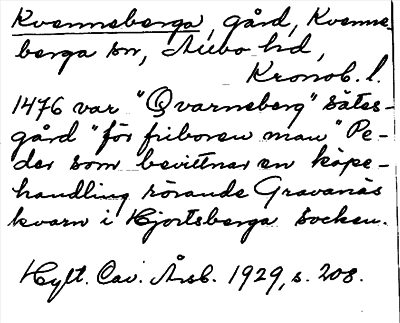 Kvenneberga, gård, Kvenne-
berga sn, Allbo hd,
Kronob. l.
1476 var "Qvarneberg" sätes-
gård "för friboren man" Pe-
der som bevittnar en köpe-
handling rörande Gravanäs
kvarn i Hjortsberga socken.
Hylt. Cav. Årsb. 1929, s. 208.